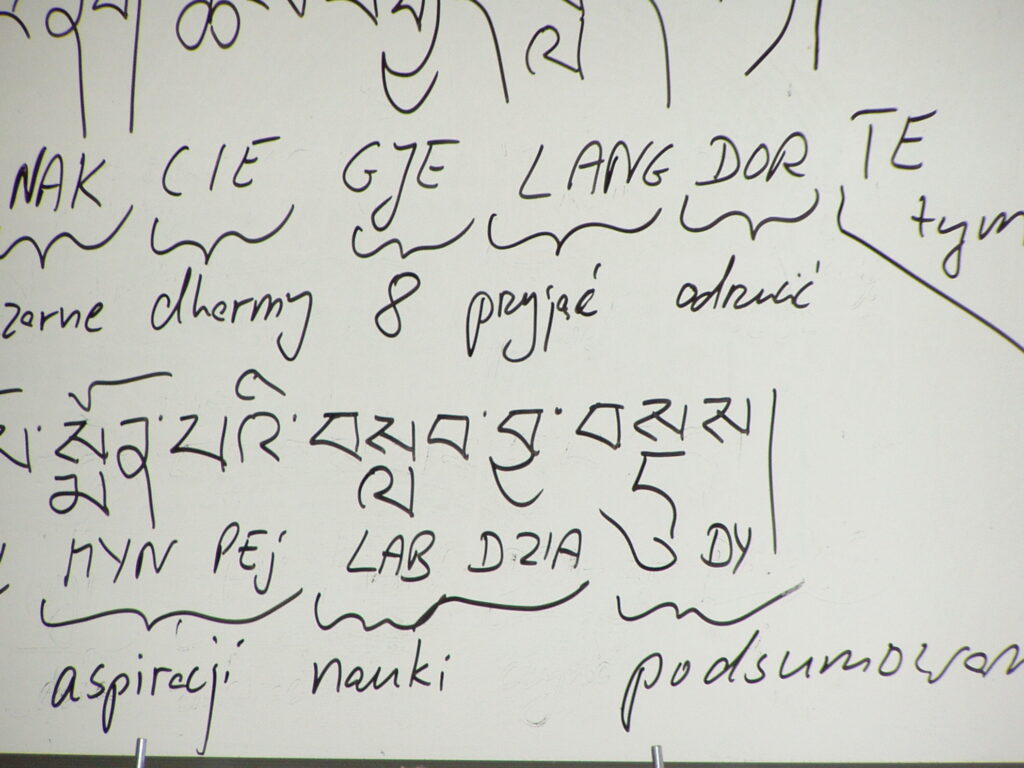 NAK CIE GJE LANG DOR TE
tym
zarne dharmy 8 przyjąć odrzucić
སྨོན་པའི་བསླབ་བྱ་བསྡུས།
MYN PEJ LAB DZIA DY
aspiracji nauki podsumowan